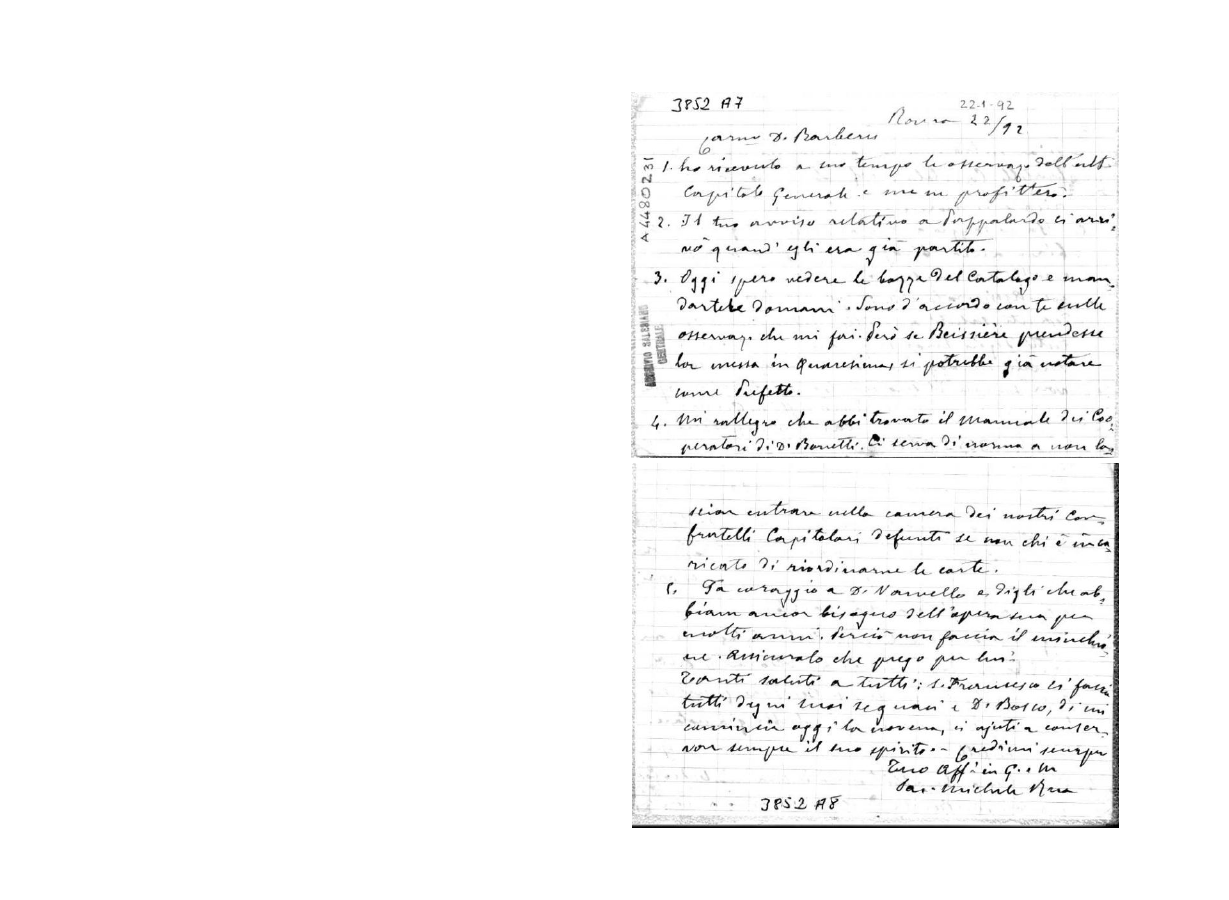 3852 A7
22·1·92
Roma 22/92
Car.mo D. Barberis
A 4480231
1. ho ricevuto a suo tempo le osservaz. dell'ult.
Capitolo Generale e me ne profitterò.
2. Il tuo avviso relativo a Pappalardo ci arri-
vò quand' egli era già partito.
3. Oggi spero vedere le bozze del Catalogo e man-
dartele domani. Sono d'accordo con te sulle
osservaz. che mi fai. Però se Beissière prendesse
la messa in Quaresima, si potrebbe già notare
come Prefetto.
4. Mi rallegro che abbi trovato il Manuale dei Coo-
peratori di D. Bonetti. Ci serva di norma a non la-
ARCHIVIO SALESIANO
CENTRALE
sciar entrare nella camera dei nostri Con-
fratelli Capitolari defunti se non chi è inca-
ricato di riordinarne le carte.
5. Fa coraggio a D. Varvello e digli che ab-
biam ancor bisogno dell'opera sua per
molti anni. Perciò non faccia il minchio-
ne. Assicuralo che prego per lui.
Tanti saluti a tutti; S. Francesco ci faccia
tutti degni suoi seguaci e D. Bosco, di cui
comincia oggi la novena, ci ajuti a conser-
var sempre il suo spirito. – Credimi sempre
Tuo Aff. in G. e M
Sac. Michele Rua
3852 A8